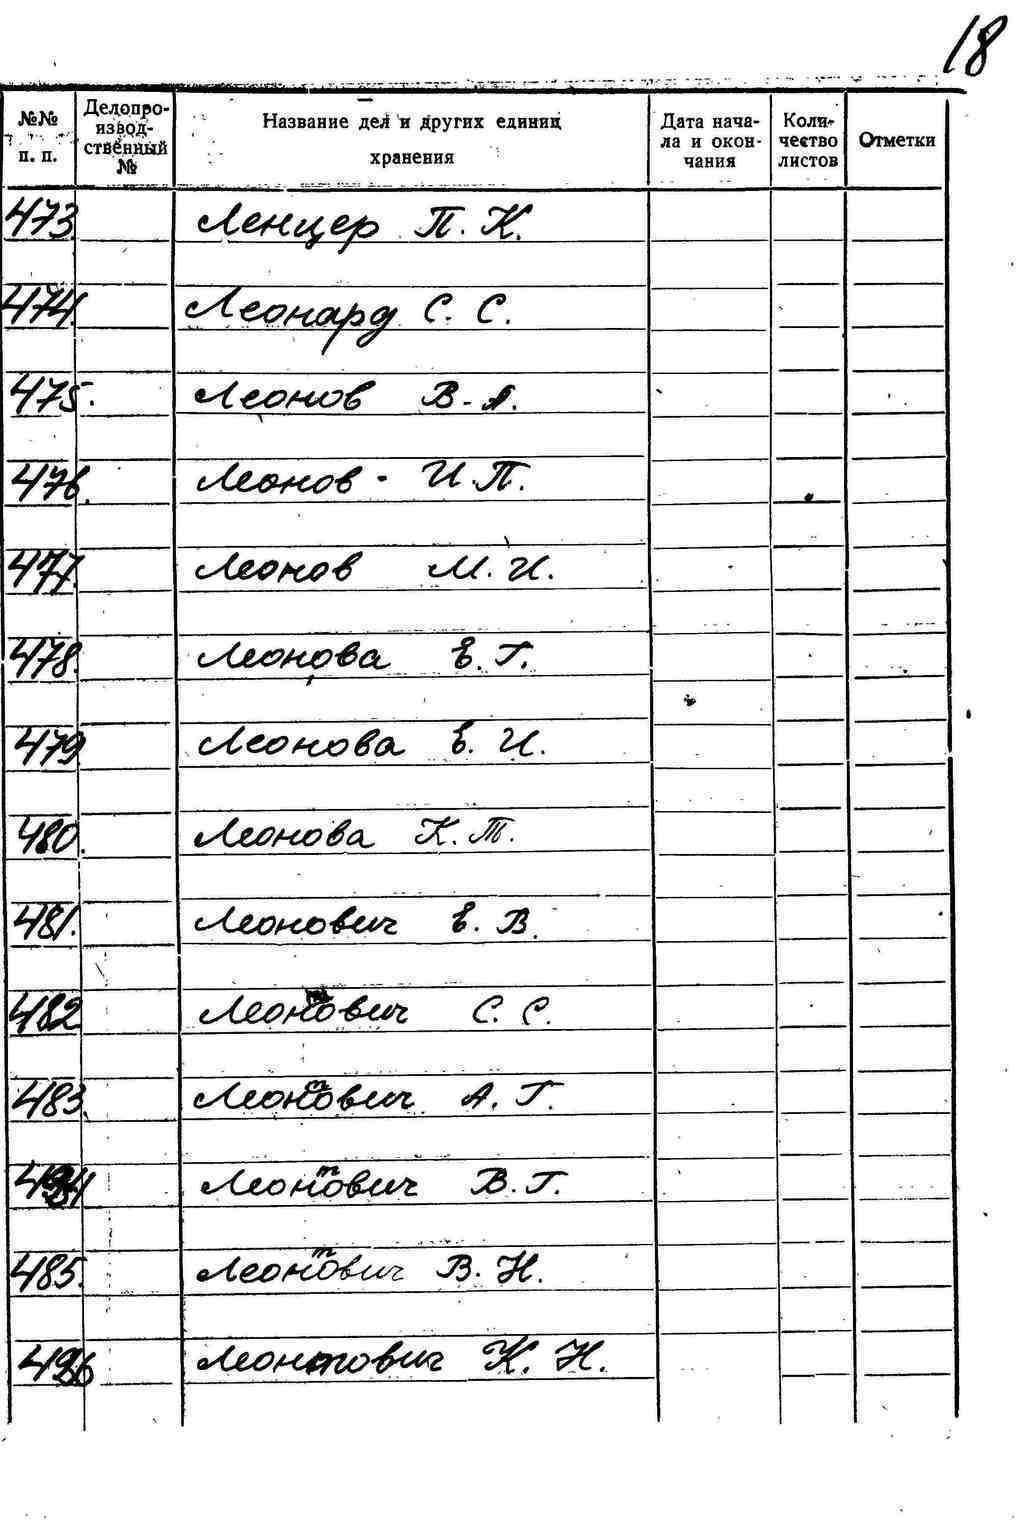 18
№№ п. п.
Делопро-
извод-
ственный
№
Название дел и других единиц
хранения
Дата нача-
ла и окон-
чания
Коли-
чество
листов
Отметки
473. Ленцер П. К.
474. Леонард С. С.
475. Леонов В. А.
476. Леонов - И. П.
477. Леонов М. И.
478. Леонова Е. Г.
479 Леонова Е. И.
480. Леонова К. Т.
481. Леонович Е. В.
482 Леонтович С. С.
483. Леонтович А. Г.
484 Леонтович В. Г.
485. Леонтович В. Н.
486 Леонтович К. Н.